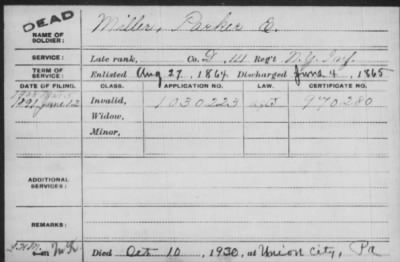 DEAD
NAME OF SOLDIER: Miller, Parker E.
SERVICE: Late rank, Co. D, 111 Reg't N.Y. Inf.
TERM OF SERVICE: Enlisted Aug 27, 1864. Discharged June 4, 1865
DATE OF FILING. CLASS. APPLICATION NO. LAW. CERTIFICATE NO.
1891 June 12 Invalid, 1030223 970280
Widow,
Minor,
ADDITIONAL SERVICES:
REMARKS:
Died Oct 10, 1930, at Union City, Pa